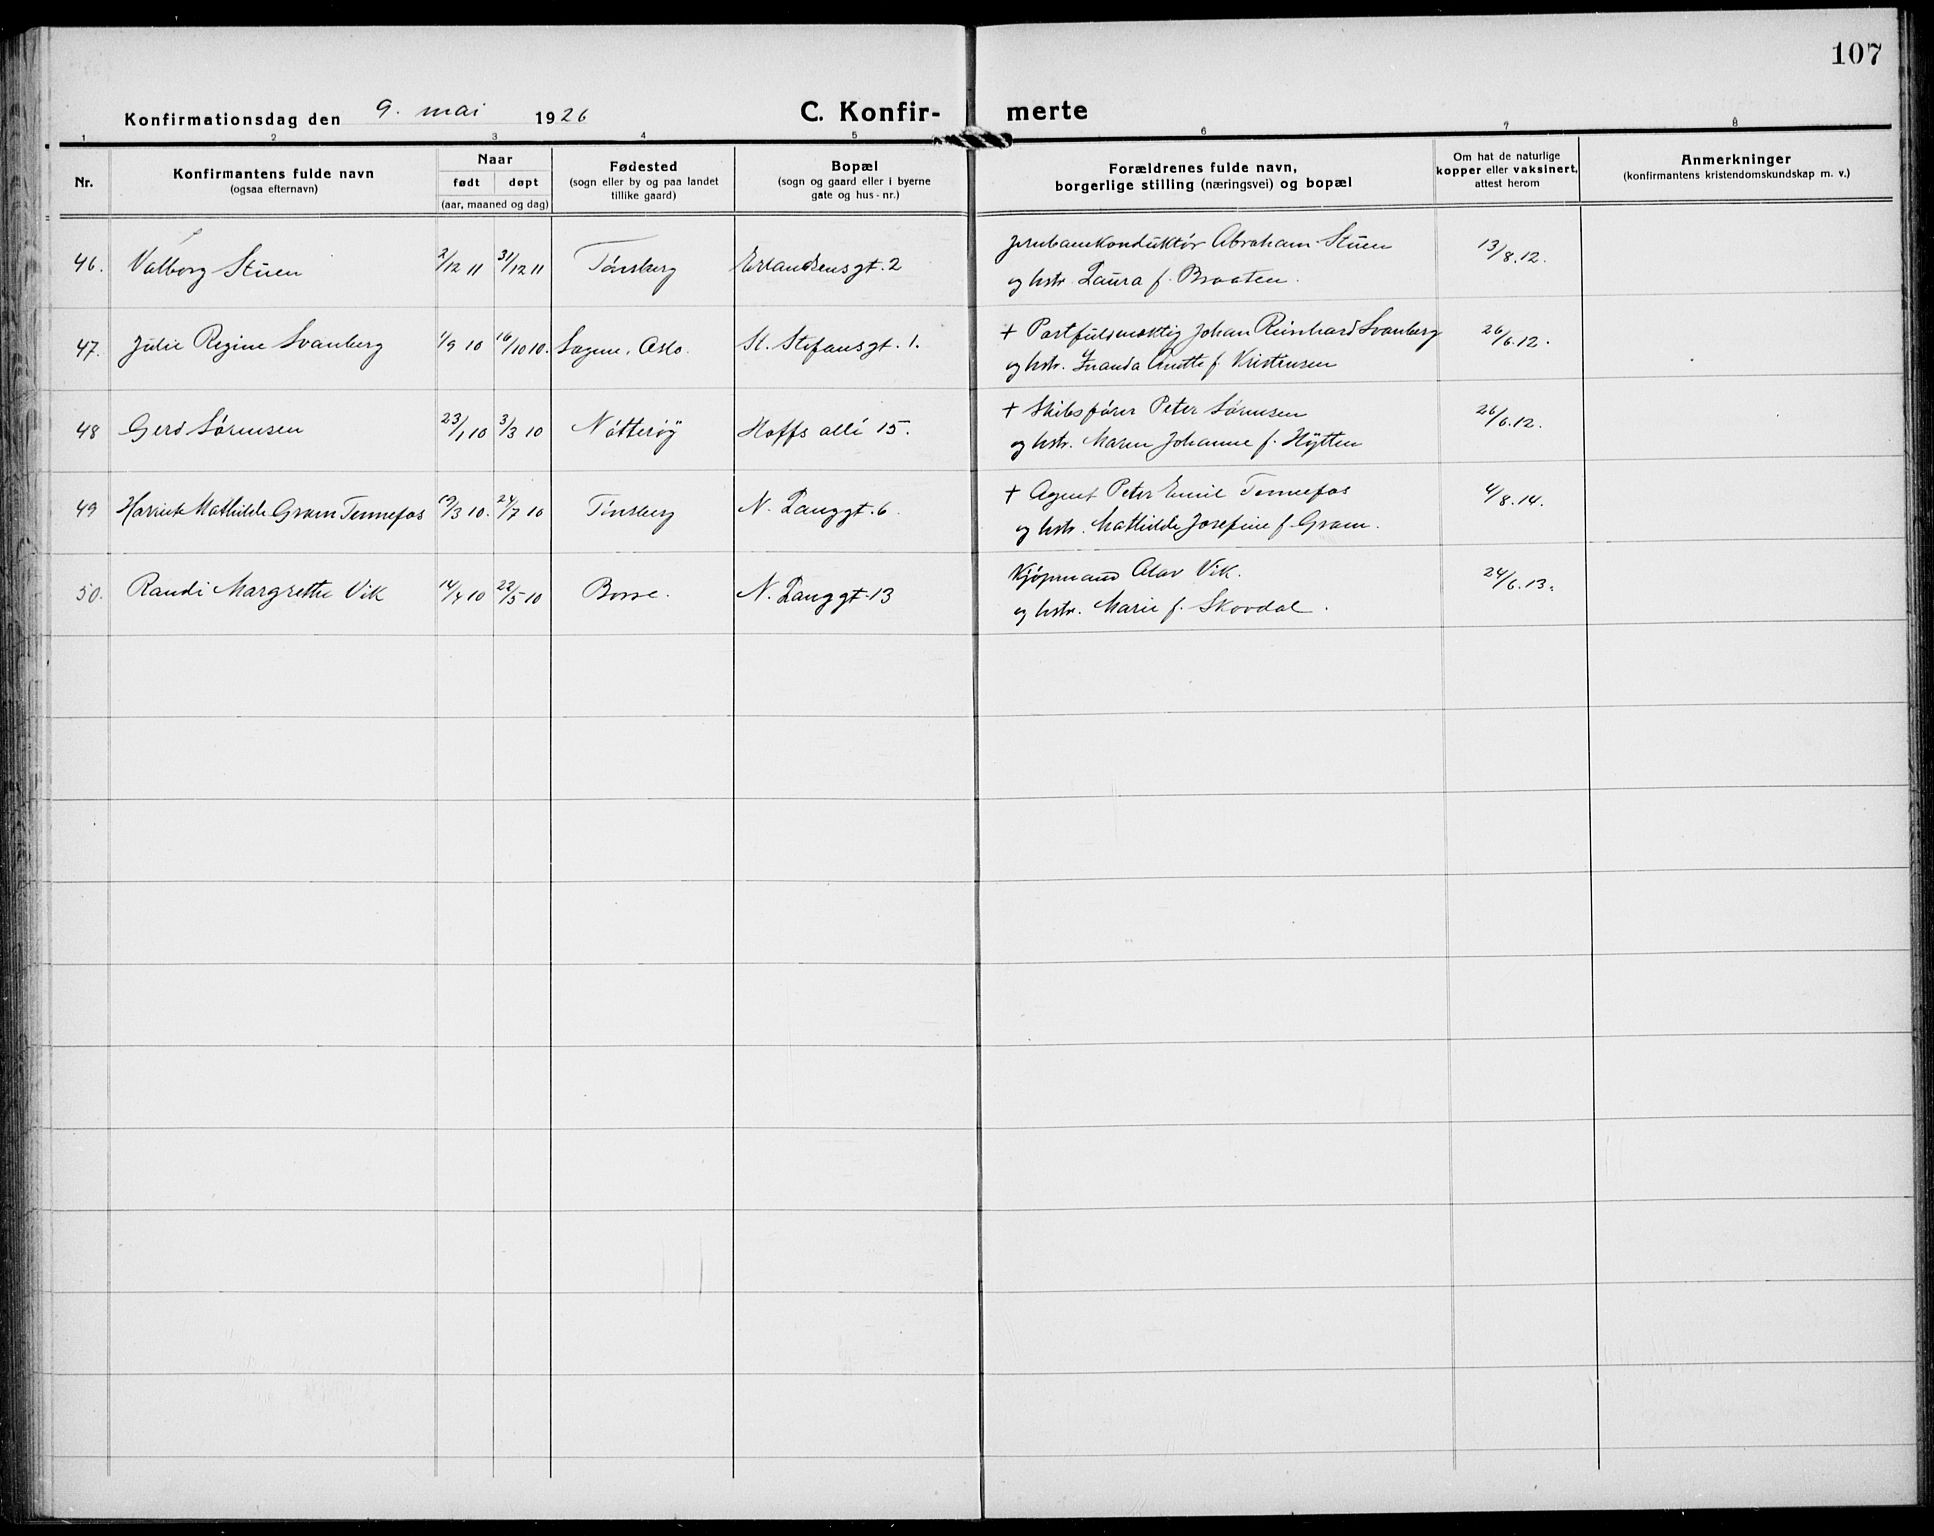 107
Konfirmationsdag den 9. mai 1926 C. Konfir- merte
1 2 3 4 5 6 7 8
Nr. Konfirmantens fulde navn (ogsaa efternavn) Naar født døpt (aar, maaned og dag) Fødested (sogn eller by og paa landet tillike gaard) Bopæl (sogn og gaard eller i byerne gate og hus-nr.) Forældrenes fulde navn, borgerlige stilling (næringsvei) og bopæl Om hat de naturlige kopper eller vaksinert, attest herom Anmerkninger (konfirmantens kristendomskundskap m. v.)
46. Valborg Stuen 2/12 11 31/12 11 Tønsberg Erlandsensgt. 2 Jernbanekonduktør Abraham Stuen 13/8.12.
og hstr. Laura f. Braaten.
47. Julie Regine Svanberg 1/9 10 16/10 10. Sagene, Oslo. St. Stefansgt. 1. + Postfuldmæktig Johan Reinhard Svanberg 26/6.12.
og hstr. Anette f. Kristensen
48 Gerd Sørensen 23/1 10 3/3 10 Nøtterøy Hoffs allé 15. + Skibsfører Peter Sørensen 26/6.12.
og hstr. Maren Johanne f. Hytten
49 Mathilde Gram Tennefos 19/3 10. 24/7 10 Tønsberg N. Langgt. 6. + Agent Peter Emil Tennefos 4/8.14.
og hstr. Mathilde Josefine f. Gram.
50. Randi Margrethe Vik 14/4 10 22/5 10 Borre. N. Langgt. 13 Kjøpmand Olav Vik. 24/6.13.
og hstr. Marie f. Skovdal.